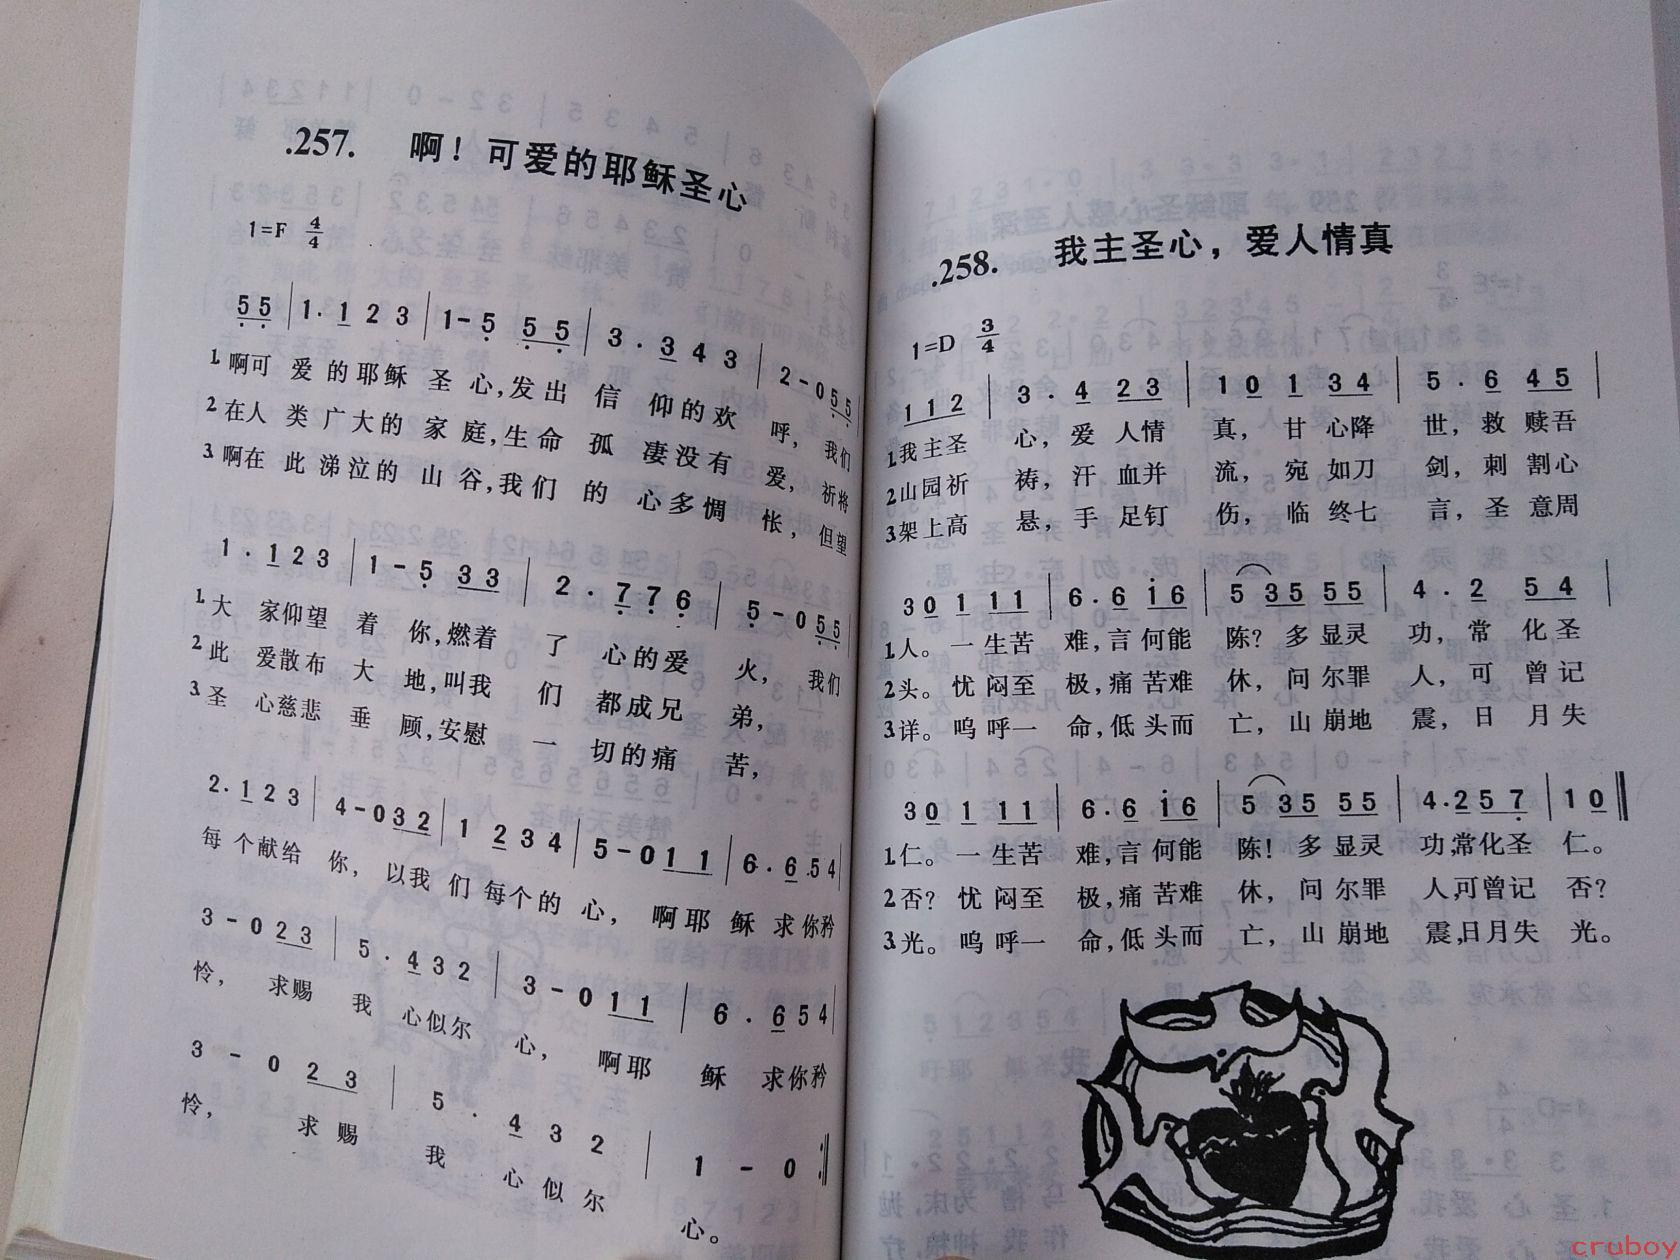 .257. 啊！可爱的耶稣圣心
1=F 4/4
5 5 | 1 . 1 2 3 | 1 - 5 5 5 | 3 . 3 4 3 | 2 - 0 5 5 |
1.啊可 爱 的 耶稣 圣 心,发 出 信 仰 的 欢 呼, 我们
2.在人 类 广 大 的 家 庭,生 命 孤 凄 没 有 爱, 祈将
3.啊在 此 涕 泣 的 山 谷,我 们 的 心 多 惆 怅, 但望
1 . 1 2 3 | 1 - 5 3 3 | 2 . 7 7 6 | 5 - 0 5 5 |
1.大 家仰望 着 你,燃着 了 心的爱 火, 我们
2.此 爱散布 大 地,叫我 们 都成兄 弟,
3.圣 心慈悲 垂 顾,安慰 一 切的痛 苦,
2. 1 2 3 | 4 - 0 3 2 | 1 2 3 4 | 5 - 0 1 1 | 6 . 6 5 4 |
每 个献给 你, 以我 们 每个的 心, 啊耶 稣 求你矜
3 - 0 2 3 | 5 . 4 3 2 | 3 - 0 1 1 | 6 . 6 5 4 |
怜, 求赐 我 心似尔 心, 啊耶 稣 求你矜
3 - 0 2 3 | 5 . 4 3 2 | 1 - 0 :||
怜, 求赐 我 心似尔 心。
.258. 我主圣心，爱人情真
1=D 3/4
1 1 2 | 3 . 4 2 3 | 1 0 1 3 4 | 5 . 6 4 5 |
1.我主圣 心, 爱 人情 真, 甘 心降 世, 救 赎吾
2.山园祈 祷, 汗 血并 流, 宛 如刀 剑, 刺 割心
3.架上高 悬, 手 足钉 伤, 临 终七 言, 圣 意周
3 0 1 1 1 | 6 . 6 i 6 | 5 3 5 5 5 | 4 . 2 5 4 |
1.人。一 生苦 难,言 何能 陈? 多 显灵 功, 常 化圣
2.头。忧 闷至 极,痛 苦难 休, 问 尔罪 人, 可 曾记
3.详。呜 呼一 命,低 头而 亡, 山 崩地 震, 日 月失
3 0 1 1 1 | 6 . 6 i 6 | 5 3 5 5 5 | 4 . 2 5 7 | 1 0 ||
1.仁。一 生苦 难,言 何能 陈! 多 显灵 功,常化圣 仁。
2.否? 忧 闷至 极,痛 苦难 休, 问 尔罪 人,可曾记 否?
3.光。呜 呼一 命,低 头而 亡, 山 崩地 震,日月失 光。
cruboy